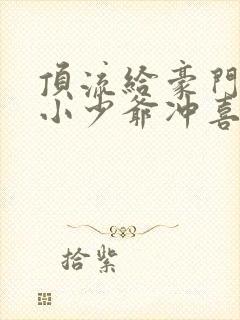 頂流給豪門
小少爺沖喜
拾紫